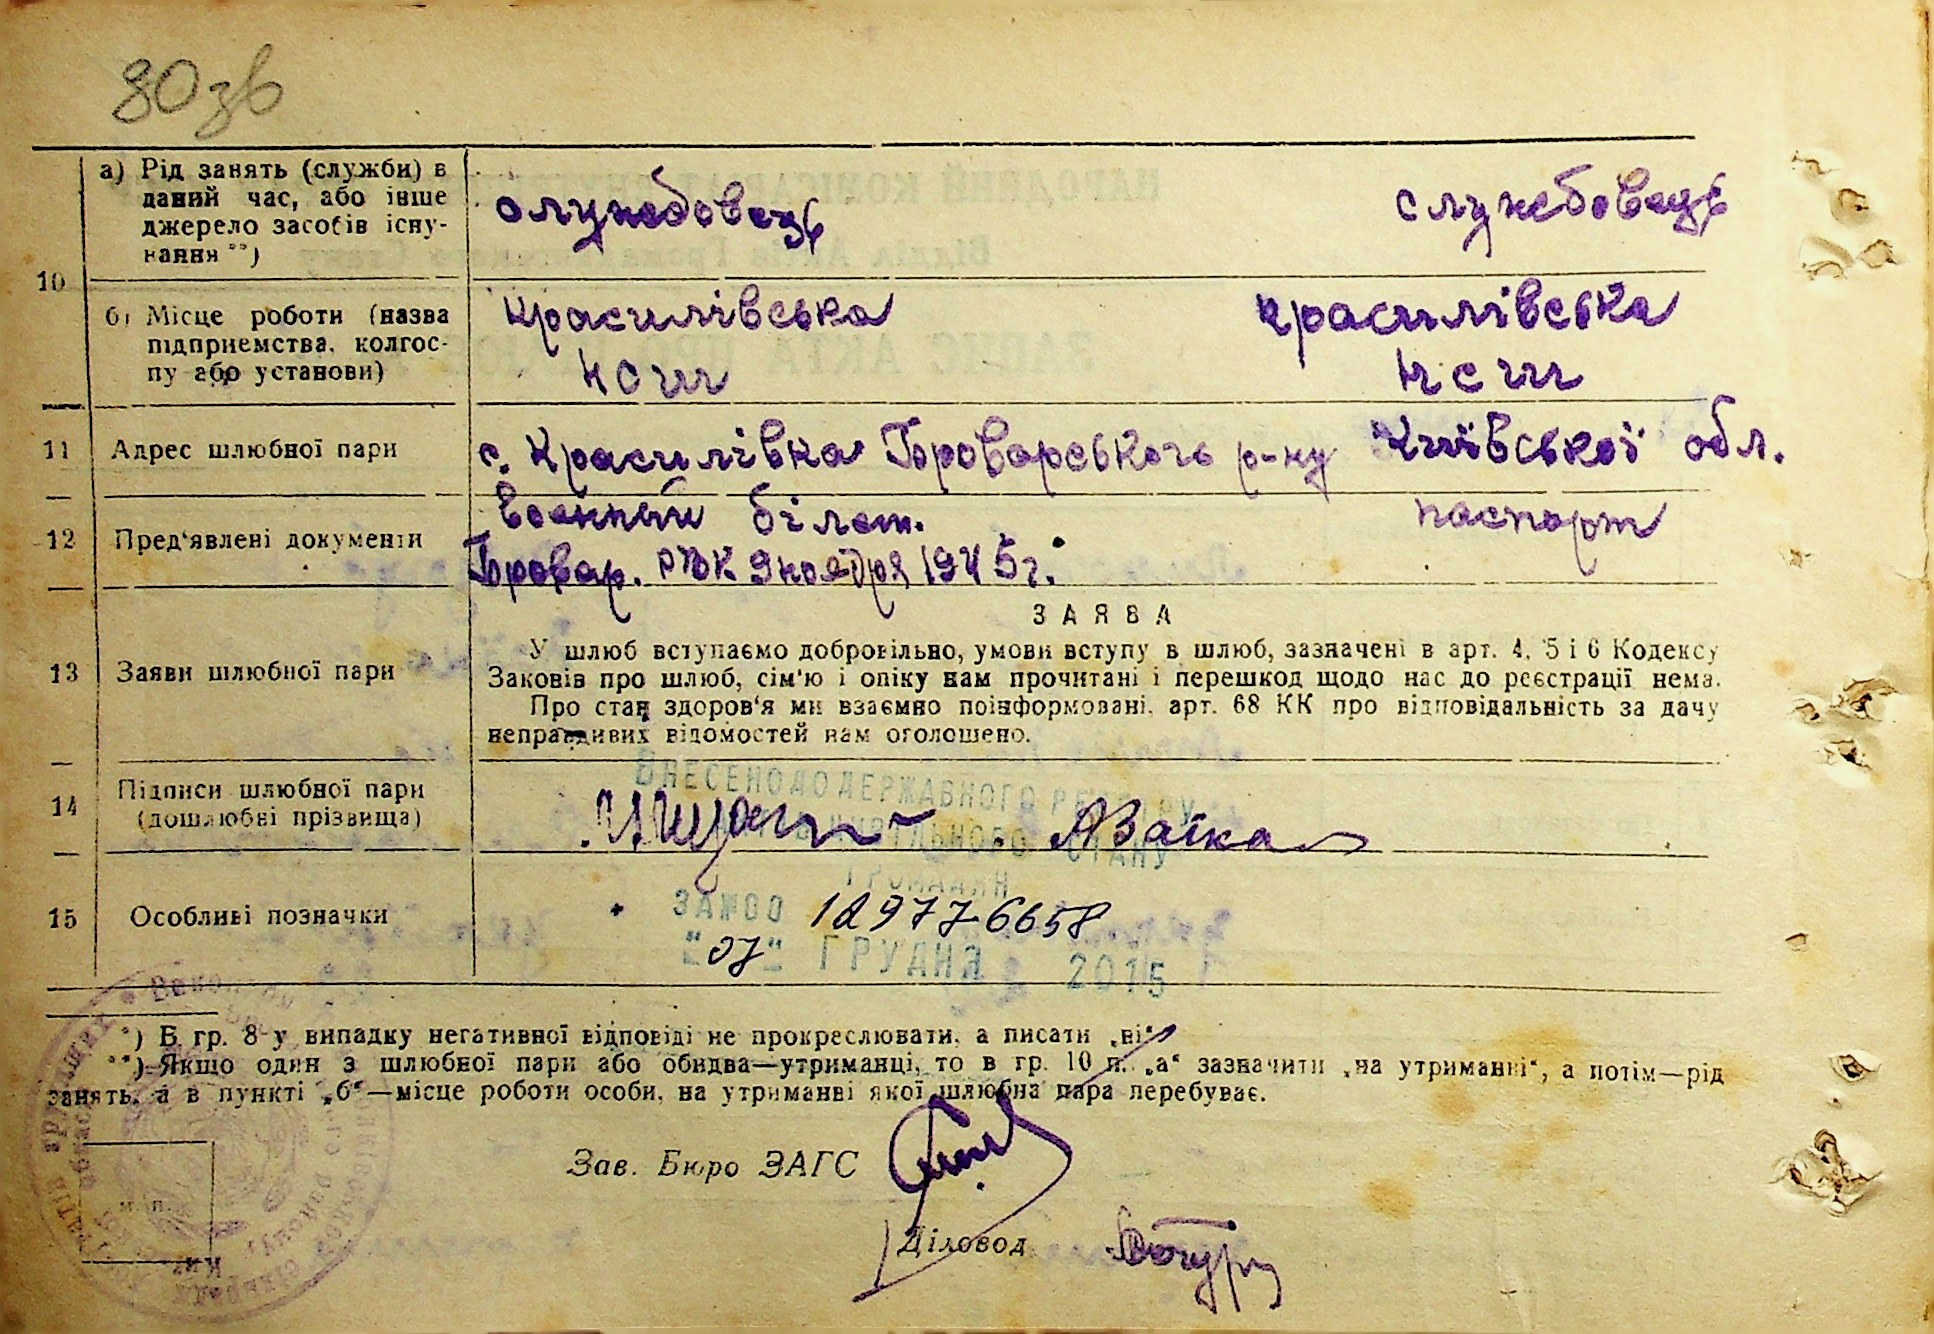 80зв
10
а) Рід занять (служби) в
даний час, або інше
джерело засобів існу-
вання **)
службовець
службовець
б) Місце роботи (назва
підприємства, колгос-
пу або установи)
Красилівська
НСШ
Красилівська
НСШ
11
Адрес шлюбної пари
с. Красилівка Броварського р-ну Київської обл.
12
Пред'явлені документи
Военный білет.
паспорт
Бровар. РВК 9 ноября 1945 г.
13
Заяви шлюбної пари
ЗАЯВА
У шлюб вступаємо добровільно, умови вступу в шлюб, зазначені в арт. 4, 5 і 6 Кодексу
Законів про шлюб, сім'ю і опіку нам прочитані і перешкод щодо нас до реєстрації нема.
Про стан здоров'я ми взаємно поінформовані, арт. 68 КК про відповідальність за дачу
неправдивих відомостей нам оголошено.
ВНЕСЕНО ДО ДЕРЖАВНОГО РЕЄСТРУ
14
Підписи шлюбної пари
(дошлюбні прізвища)
АЗаїка
СТАНУ
ГРОМАДЯН
15
Особливі позначки
ЗА №00 129776658
"07" ГРУДНЯ 2015
*) В гр. 8-у випадку негативної відповіді не прокреслювати, а писати „ні“
**) Якщо один з шлюбної пари або обидва—утриманці, то в гр. 10 п. „а“ зазначити „на утриманні“, а потім—рід
занять, а в пункті „б“—місце роботи особи, на утриманні якої шлюбна пара перебуває.
м. п.
Зав. Бюро ЗАГС
Діловод